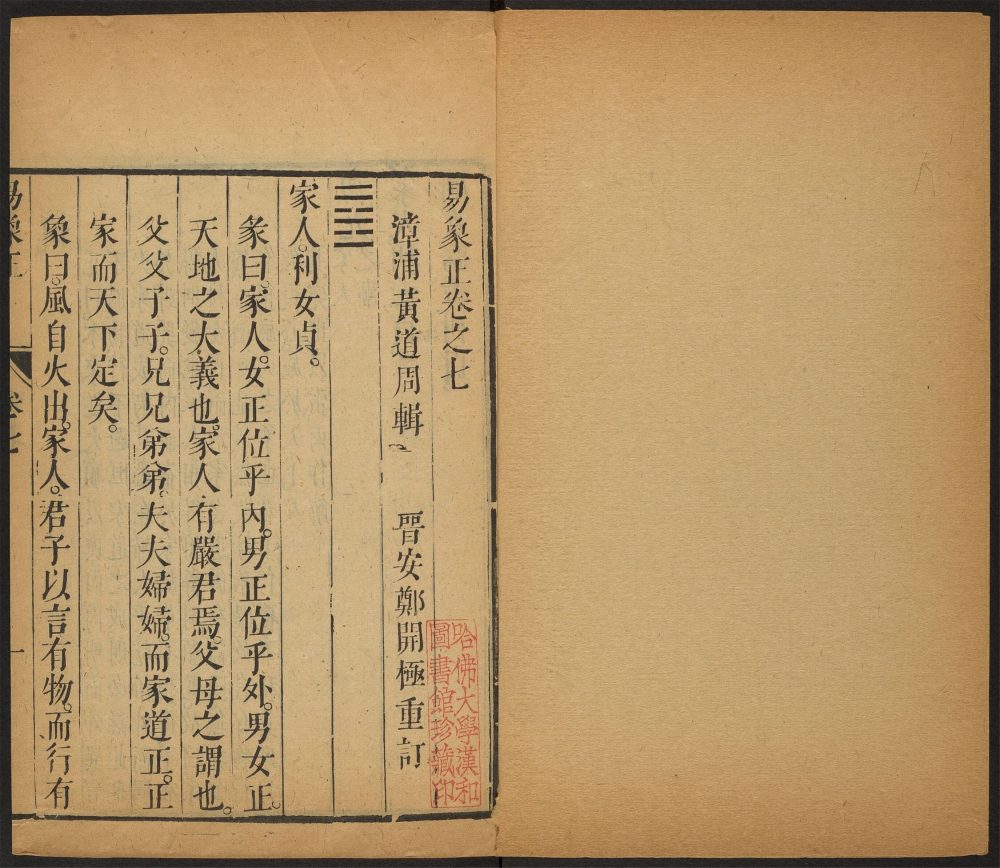 易象正卷之七
漳浦黃道周輯 晉安鄭開極重訂
䷤
家人。利女貞。
彖曰。家人。女正位乎內。男正位乎外。男女正。
天地之大義也。家人有嚴君焉。父母之謂也。
父父子子。兄兄弟弟。夫夫婦婦。而家道正。正
家而天下定矣。
象曰。風自火出。家人。君子以言有物。而行有
易象正 卷七 一
哈佛大學漢和
圖書館珍藏印